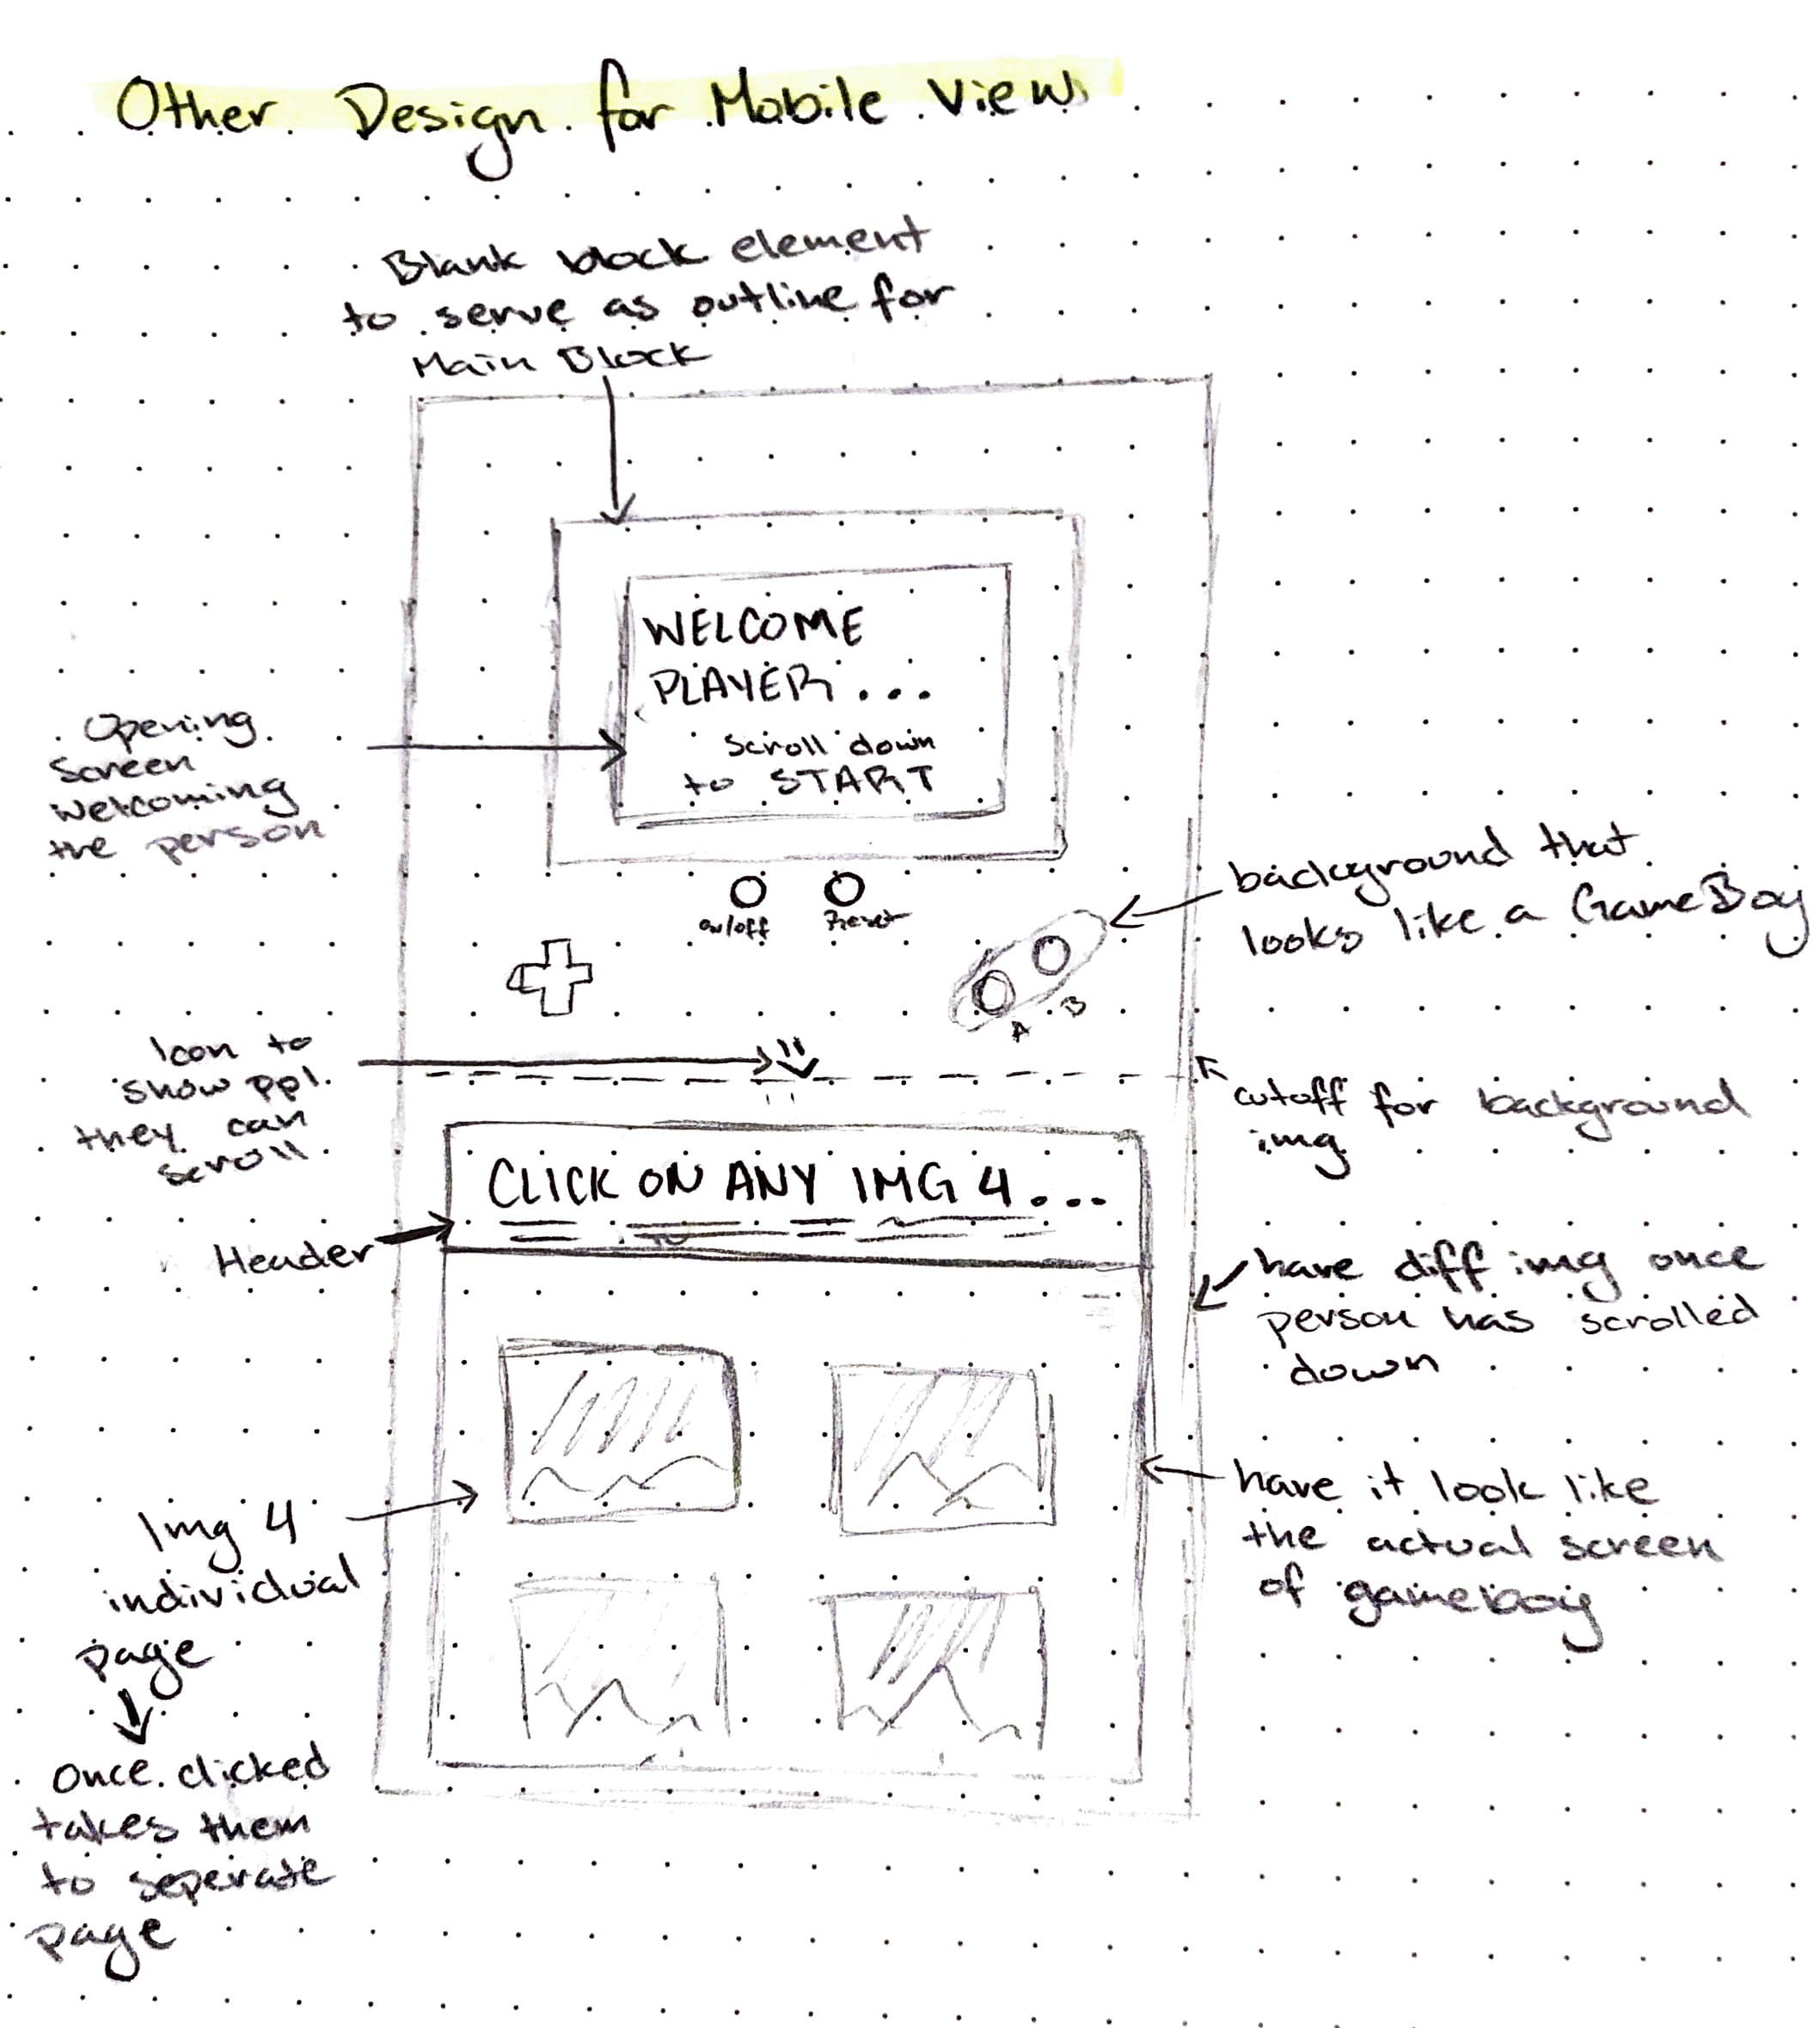 Other Design for Mobile View
Blank block element
to serve as outline for
Main Block
WELCOME
PLAYER...
scroll down
to START
Opening
Screen
welcoming
the person
on/off
Reset
background that
looks like a GameBoy
A
B
Icon to
show ppl.
they can
scroll
cutoff for background
img
CLICK ON ANY IMG 4...
Header
have diff img once
person has scrolled
down
have it look like
the actual screen
of gameboy
Img 4
individual
page
Once clicked
takes them
to seperate
page